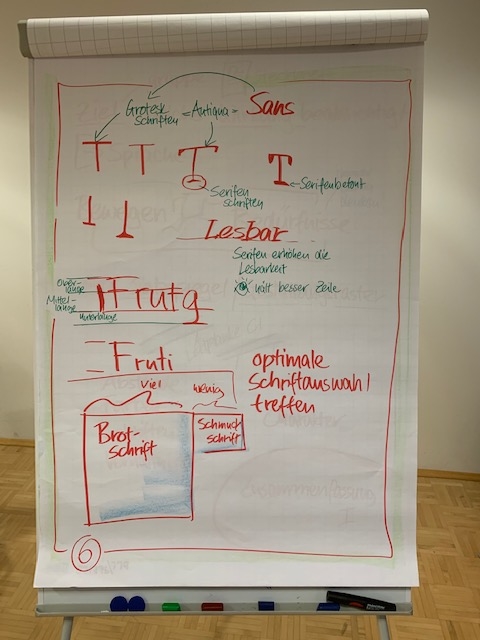 Sans
Grotesk
schriften
-Antiqua-
T T T T
Serifen
schriften
Serifenbetont
Lesbar
Serifen erhöhen die
Lesbarkeit
hält besser Zeile
Ober-
länge
Mittel-
länge
Unterlänge
Frutg
Fruti
optimale
Schriftauswahl
treffen
Viel
wenig
Brot-
schrift
Schmuck
schrift
6